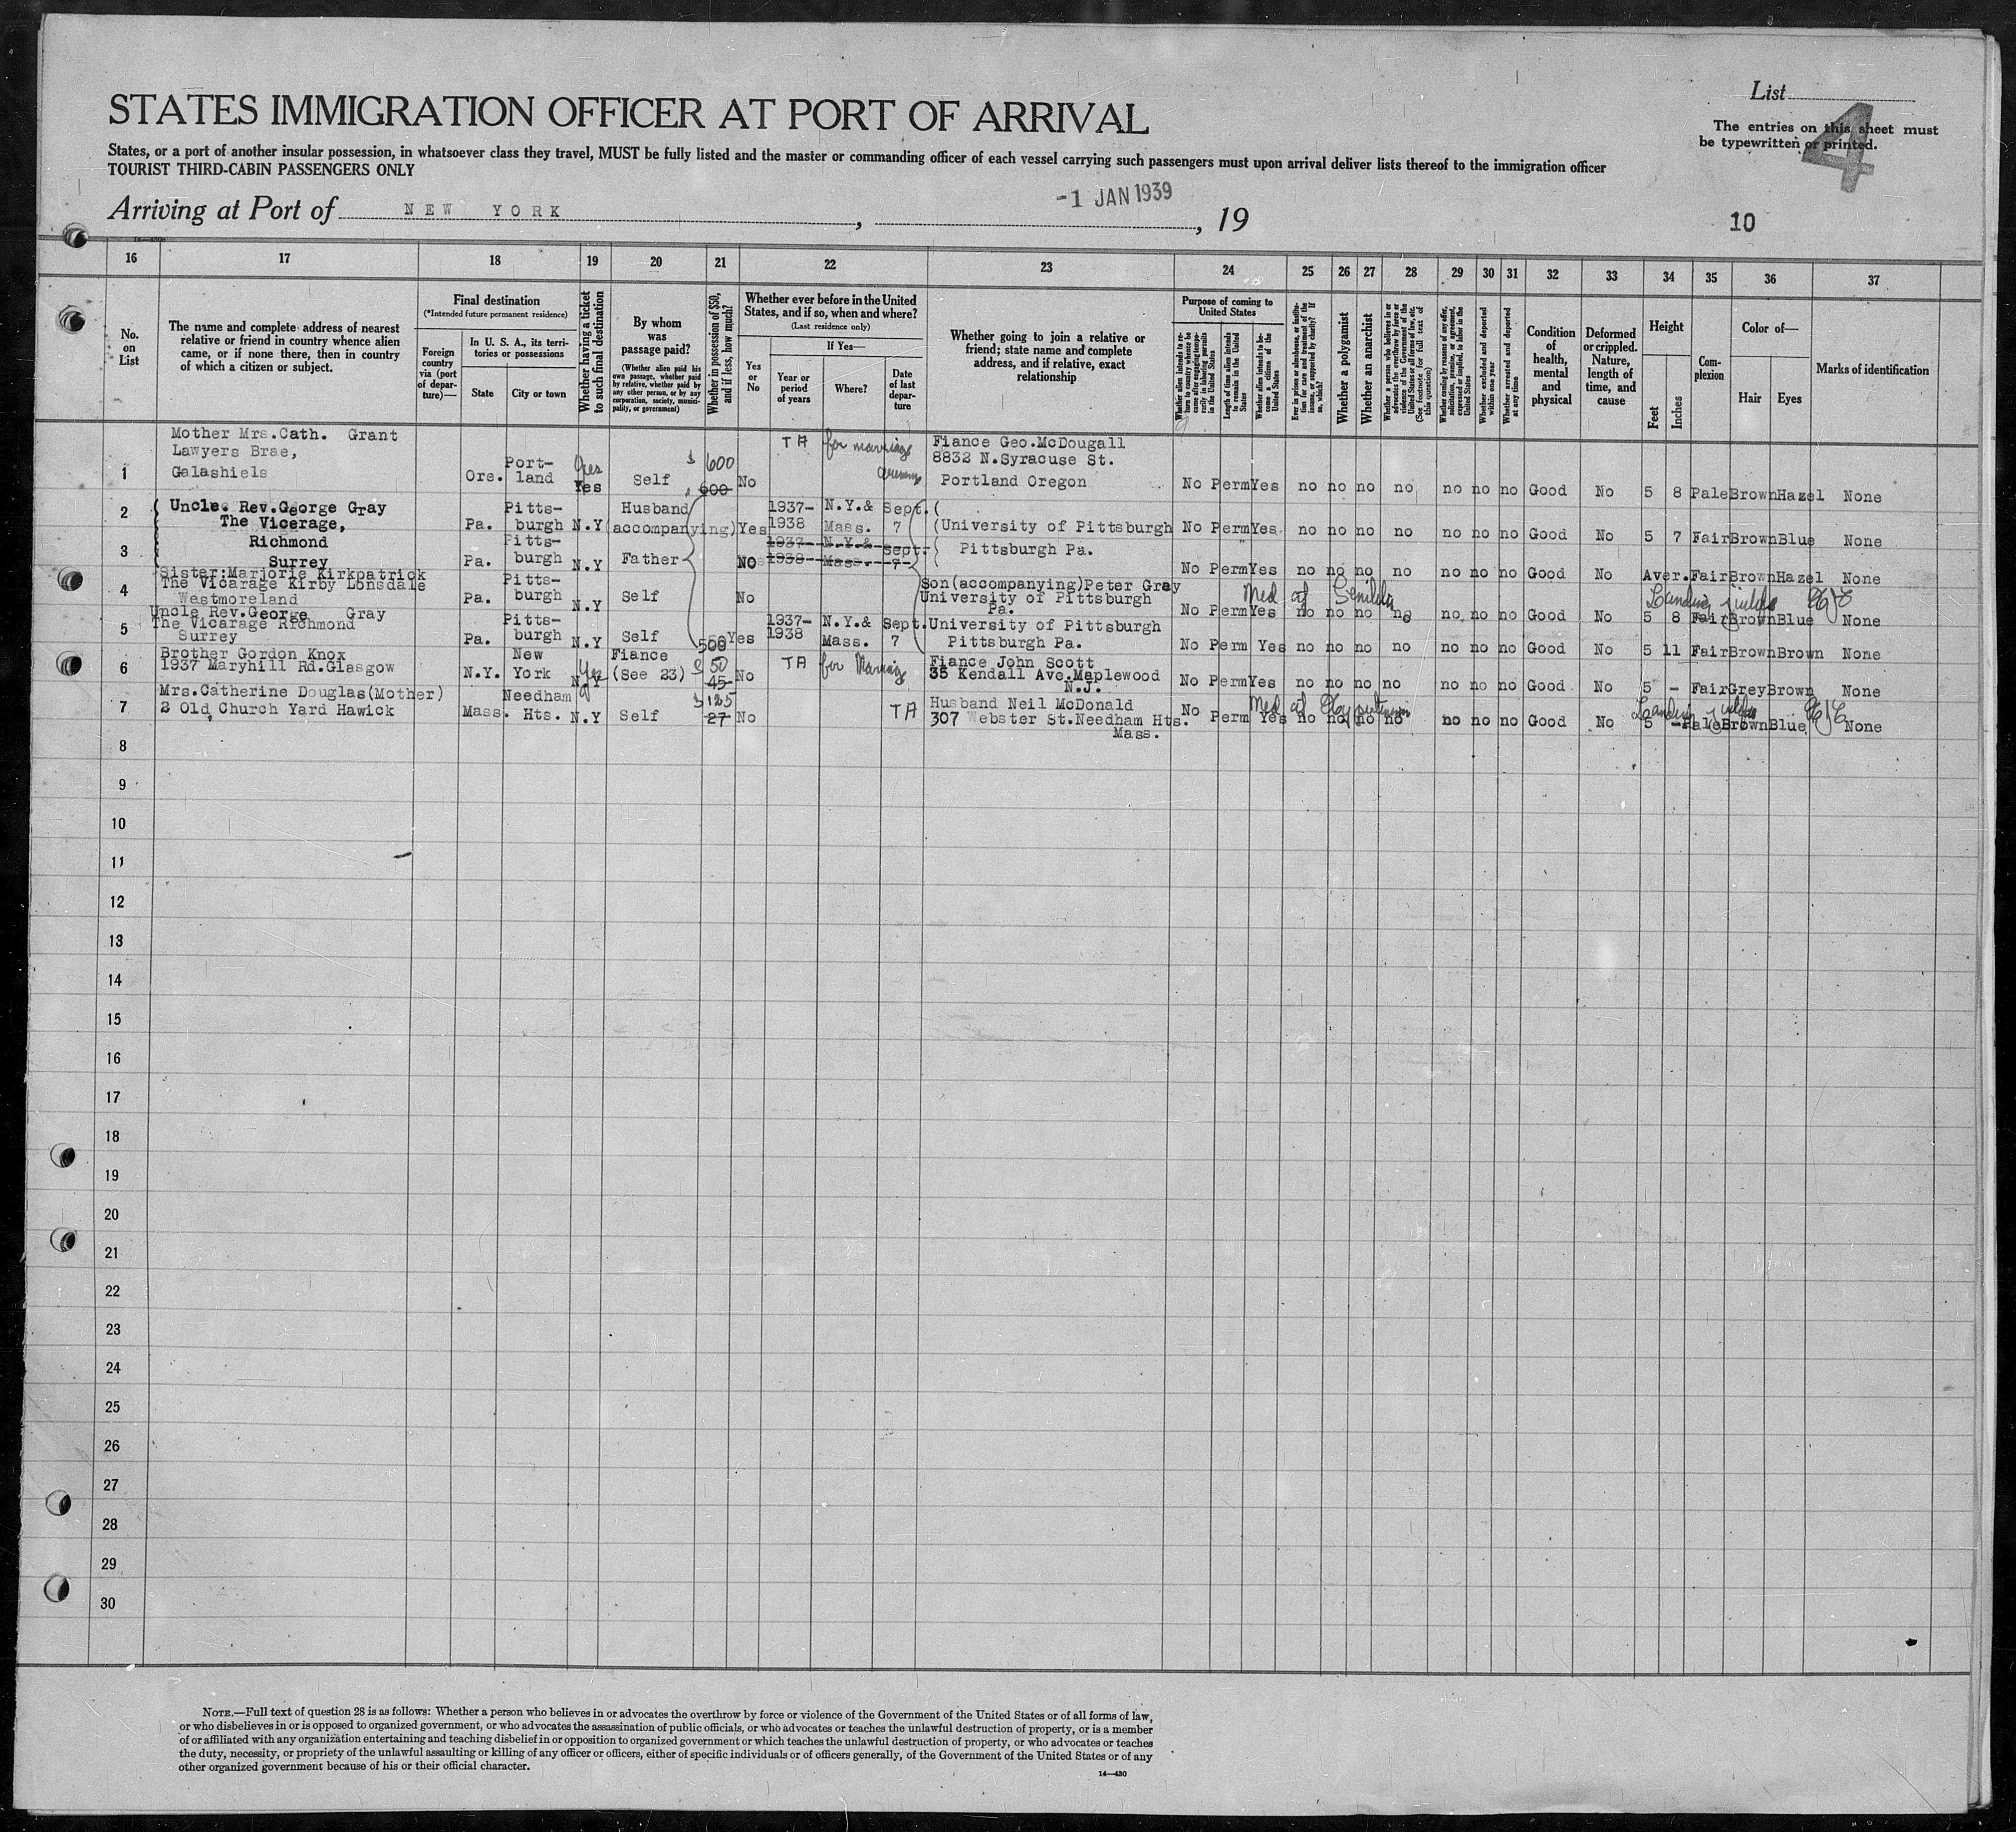 List
STATES IMMIGRATION OFFICER AT PORT OF ARRIVAL
The entries on this sheet must
be typewritten or printed.
4
States, or a port of another insular possession, in whatsoever class they travel, MUST be fully listed and the master or commanding officer of each vessel carrying such passengers must upon arrival deliver lists thereof to the immigration officer
TOURIST THIRD-CABIN PASSENGERS ONLY
Arriving at Port of NEW YORK, -1 JAN 1939, 19
10
16 17 18 19 20 21 22 23 24 25 26 27 28 29 30 31 32 33 34 35 36 37
No. on List
The name and complete address of nearest
relative or friend in country whence alien
came, or if none there, then in country
of which a citizen or subject.
Final destination
(*Intended future permanent residence)
Foreign country via (port of departure)—
In U. S. A., its territories or possessions
State
City or town
Whether having a ticket to such final destination
By whom was passage paid?
(Whether alien paid his own passage, whether paid by relative, whether paid by any other person, or by any corporation, society, municipality, or government)
Whether in possession of $50, and if less, how much?
Whether ever before in the United States, and if so, when and where?
(Last residence only)
Yes or No
If Yes—
Year or period of years
Where?
Date of last departure
Whether going to join a relative or
friend; state name and complete
address, and if relative, exact
relationship
Purpose of coming to United States
Length of time alien intends to remain in the United States
Whether alien intends to become a citizen of the United States
Whether a polygamist
Whether an anarchist
(See footnote for full text of this question)
Whether excluded and deported within one year
Whether arrested and deported at any time
Condition of health, mental and physical
Deformed or crippled. Nature, length of time, and cause
Height
Feet
Inches
Complexion
Color of—
Hair
Eyes
Marks of identification
1 Mother Mrs.Cath. Grant
Lawyers Brae,
Galashiels
Ore. Port-land Yes Yes Self $ 600 600 No TA for marriage ceremony
Fiance Geo.McDougall
8832 N.Syracuse St.
Portland Oregon
No Perm Yes no no no no no no no Good No 5 8 Pale Brown Hazel None
2 Uncle. Rev.George Gray
The Vicerage,
Pa. Pitts-burgh N.Y Husband (accompanying) Yes 1937-1938 N.Y.& Mass. Sept. 7
(University of Pittsburgh
No Perm Yes no no no no no no no Good No 5 7 Fair Brown Blue None
3 Richmond
Surrey
Pa. Pitts-burgh N.Y Father No 1937-1938 N.Y.& Mass. Sept. 7
Pittsburgh Pa.
No Perm Yes no no no no no no no Good No Aver. Fair Brown Hazel None
4 Sister:Marjorie Kirkpatrick
The Vicarage Kirby Lonsdale
Westmoreland
Pa. Pitts-burgh N.Y Self No
Son(accompanying)Peter Gray
University of Pittsburgh
Pa.
Med Senility
No Perm Yes no no no no no no no Good No 5 8 Fair Brown Blue None
5 Uncle Rev.George Gray
The Vicarage Richmond
Surrey
Pa. Pitts-burgh N.Y Self 500 Yes 1937-1938 N.Y.& Mass. Sept. 7
University of Pittsburgh
Pittsburgh Pa.
No Perm Yes no no no no no no no Good No 5 11 Fair Brown Brown None
6 Brother Gordon Knox
1937 Maryhill Rd.Glasgow
N.Y. New York Yes N.Y Fiance (See 23) 50 45 No TA for Marriage
Fiance John Scott
35 Kendall Ave.Maplewood
N.J.
No Perm Yes no no no no no no no Good No 5 - Fair Grey Brown None
7 Mrs.Catherine Douglas(Mother)
2 Old Church Yard Hawick
Mass. Needham Hts. N.Y Self $ 125 27 No TA
Husband Neil McDonald
307 Webster St.Needham Hts.
Mass.
Med Hypertension
No Perm Yes no no no no no no no Good No 5 - Pale Brown Blue None
8
9
10
11
12
13
14
15
16
17
18
19
20
21
22
23
24
25
26
27
28
29
30
NOTE.—Full text of question 28 is as follows: Whether a person who believes in or advocates the overthrow by force or violence of the Government of the United States or of all forms of law,
or who disbelieves in or is opposed to organized government, or who advocates the assassination of public officials, or who advocates or teaches the unlawful destruction of property, or is a member
of or affiliated with any organization entertaining and teaching disbelief in or opposition to organized government or which teaches the unlawful destruction of property, or who advocates or teaches
the duty, necessity, or propriety of the unlawful assaulting or killing of any officer or officers, either of specific individuals or of officers generally, of the Government of the United States or of any
other organized government because of his or their official character.
14—430